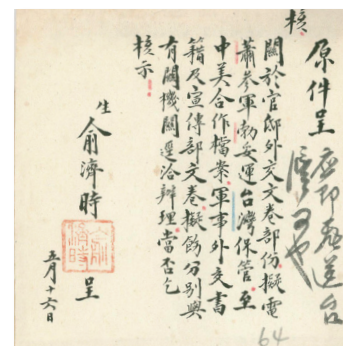 核
原件呈
關於官邸外交文卷部份擬電
蕭參軍勃妥運台灣保管至
中美合作檔案軍事外交書
籍及宣傳部文卷擬飭分別與
有關機關逕洽辦理當否乞
核示
生
俞濟時
呈
五月十六日
64